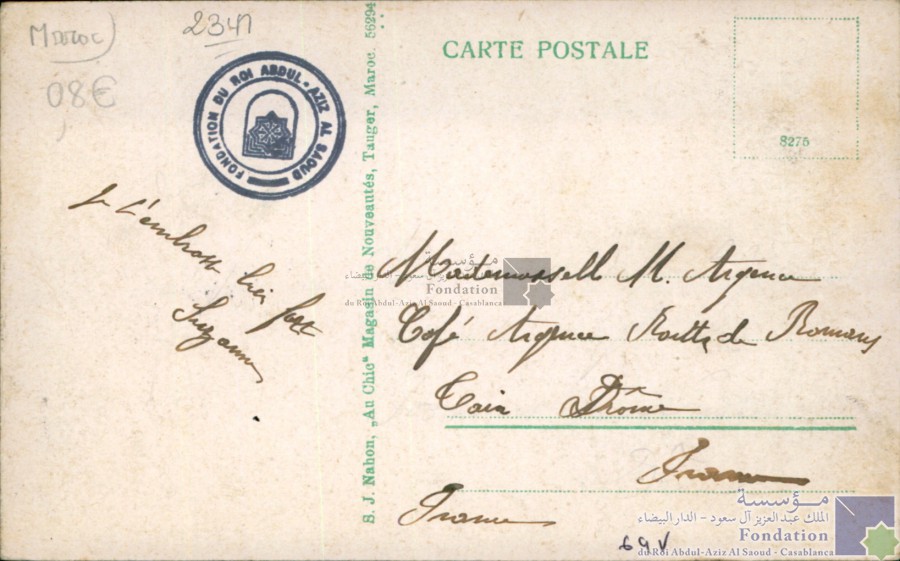 Maroc)
2341
08€
FONDATION DU ROI ABDUL-AZIZ AL SAOUD
CARTE POSTALE
8275
S. J. Nahon, „Au Chic“ Magasin de Nouveautés, Tanger, Maroc. 56294
Je t'embrasse
bien fort
Suzanne
Mademoiselle M. Argence
Café Argence Route de Romans
Tain Drôme
France
France
69V
مؤسسة
الملك عبد العزيز آل سعود - الدار البيضاء
Fondation
du Roi Abdul-Aziz Al Saoud - Casablanca
مؤسسة
الملك عبد العزيز آل سعود - الدار البيضاء
Fondation
du Roi Abdul-Aziz Al Saoud - Casablanca